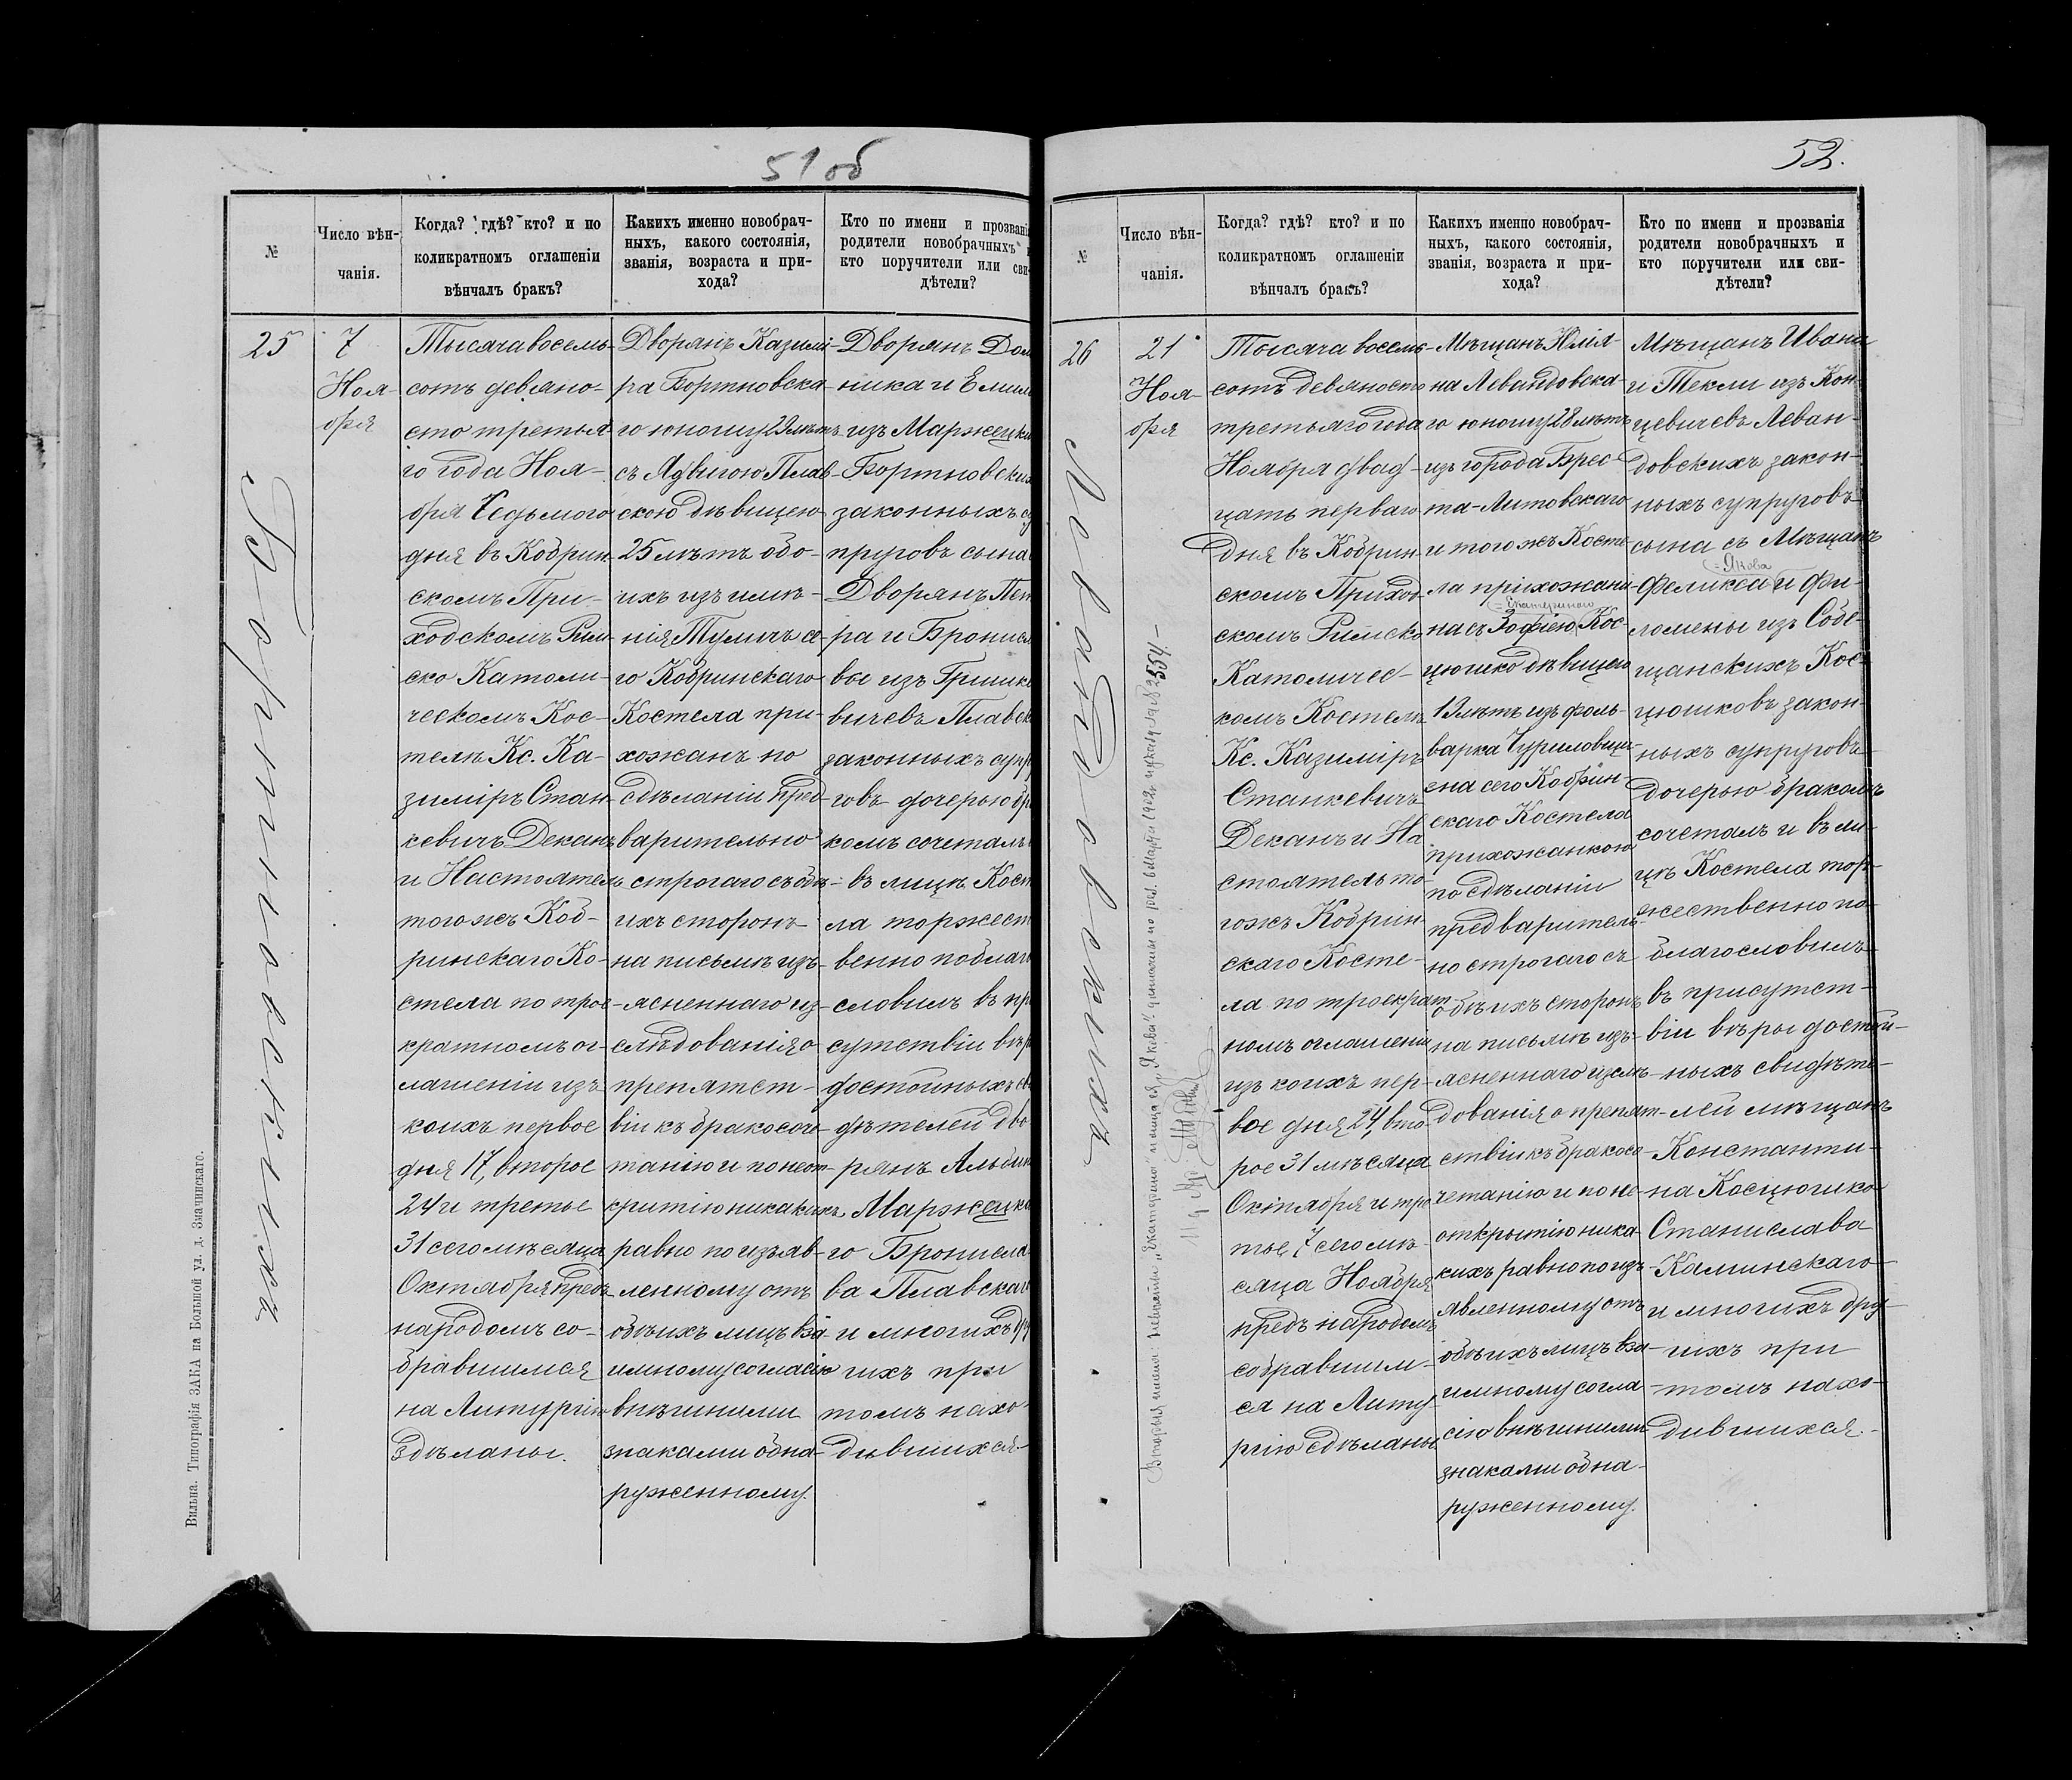 51 об
№
Число вѣн-
чанія.
Когда? гдѣ? кто? и по
коликратномъ оглашеніи
вѣнчалъ бракъ?
Какихъ именно новобрач-
ныхъ, какого состоянія,
званія, возраста и при-
хода?
Кто по имени и прозванія
родители новобрачныхъ
кто поручители или сви-
дѣтели?
25
7
Ноя-
бря
Бортновскихъ
Тысяча восемь-
сотъ девяно-
сто третья-
го года Ноя-
бря Седьмого
дня въ Кобрин-
скомъ При-
ходскомъ Рим-
ско Католи-
ческомъ Кос-
телѣ Кс. Ка-
зиміръ Стан-
кевичъ Деканъ
и Настоятель
тогожъ Коб-
ринскаго Ко-
стела по трое-
кратномъ ог-
лашеніи изъ
коихъ первое
дня 17, второе
24 и третье
31 сего мѣсяца
Октября предъ
народомъ со-
бравшимся
на Литургію
здѣланы.
Дворянъ Казими-
ра Бортновска-
го юношу 29 лѣтъ
съ Ядвигою Плав-
скою дѣвицею
25 лѣтъ обо-
ихъ изъ имѣ-
нія Туличъ се-
го Кобринскаго
Костела при-
хожанъ по
сдѣланіи пред-
варительно
строгаго съ обѣ-
ихъ сторонъ
на письмѣ изъ-
ясненнаго из-
слѣдованія о
препятст-
віи къ бракосоче-
танію и понеот-
критію никакихъ
равно по изъяв-
ленному отъ
обѣихъ лицъ вза-
имному согласію
внѣшними
знаками обна-
руженному.
Дворянъ Дом
ника и Емил
изъ Маржецки
Бортновских
законныхъ су
пруговъ сына
Дворянъ Пет
ра и Бронисл
вы изъ Гришке
вичевъ Плавск
законныхъ супру
говъ дочерью бр
комъ сочеталъ
въ лицѣ Кост
ла торжест
венно поблаго
словилъ въ пр
сутствіи вѣр
достойныхъ св
дѣтелей дво
рянъ Альбин
Маржецка
го Бронисла
ва Плавскаго
и многихъ дру
гихъ при
томъ нахо-
дившихся.
Вильна. Типографія ЗАКА на Большой ул. д. Значинскаго.
52.
№
Число вѣн-
чанія.
Когда? гдѣ? кто? и по
коликратномъ оглашеніи
вѣнчалъ бракъ?
Какихъ именно новобрач-
ныхъ, какого состоянія,
званія, возраста и при-
хода?
Кто по имени и прозванія
родители новобрачныхъ и
кто поручители или сви-
дѣтели?
26
21
Ноя-
бря
Левандовскихъ
Тысяча восемь-
сотъ девяносто
третьяго года
Ноября двад-
цать перваго
дня въ Кобрин-
скомъ Приход-
скомъ Римско
Католичес-
комъ Костелѣ
Кс. Казиміръ
Станкевичъ
Деканъ и На-
стоятель то-
гожъ Кобрин-
скаго Косте-
ла по троекрат-
номъ оглашеніи
изъ коихъ пер-
вое дня 24, вто-
рое 31 мѣсяца
Октября и тре-
тье 7 сего мѣ-
сяца Ноября
предъ народомъ
собравшим-
ся на Литу-
ргію сдѣланы
Мѣщанъ Юлія-
на Левандовска-
го юношу 28 лѣтъ
изъ города Брес-
та-Литовскаго
и того жъ Косте-
ла прихожани-
=Екатериною
на съ Зофіею Кос-
цюшко дѣвицею
19 лѣтъ изъ фоль-
варка Чуриловщи-
сна сего Кобрин-
скаго Костела
прихожанкою
по сдѣланіи
предваритель-
но строгаго съ
обѣихъ сторонъ
на письмѣ изъ-
ясненнаго изслѣ-
дованія о препят-
ствіи къ бракосо-
четанію и по не-
открытію ника-
кихъ равно по изъ-
явленному отъ
обѣихъ лицъ вза-
имному согла-
сію внѣшними
знаками обна-
руженному.
Мѣщанъ Ивана
и Текли изъ Кон-
цевичевъ Леван-
довскихъ закон-
ныхъ супруговъ
сына съ Мѣщанъ
=Якова
Феликса и Фи-
ломены изъ Собе-
щанскихъ Кос-
цюшковъ закон-
ныхъ супруговъ
дочерью бракомъ
сочеталъ и въ ли-
цѣ Костела тор-
жественно по-
благословилъ
въ присутст-
віи вѣры достой-
ныхъ свидѣте-
лей мѣщанъ
Константи-
на Косцюшко
Станислава
Каминскаго
и многихъ дру-
гихъ при
томъ нахо-
дившихся.